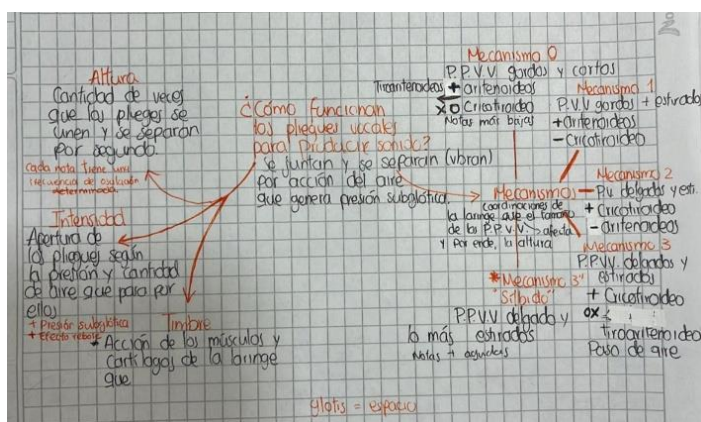 Altura
Cantidad de veces
que los pliegues se
unen y se separan
por segundo.
cada nota tiene una
frecuencia de
determinada
Intensidad
Apertura de
los pliegues según
la presión y cantidad
de aire que pasa por
ellos
+ Presión subglótica
+ Efecto rebote
Timbre
* Acción de los músculos y
cartílagos de la laringe
que
¿Cómo funcionan
los pliegues vocales
para producir sonido?
Se juntan y se separan (vibran)
por acción del aire
que genera presión subglótica.
Mecanismos
coordinaciones de
la laringe que el tamaño
de los P.P.V.V. > afecta
y por ende, la altura
Mecanismo 0
P.P.V.V. gordos y cortos
+ aritenoideos
X O Cricotiroideo
Notas más bajas
Mecanismo 1
P.V.V gordos + estirados
+ aritenoideos
- Cricotiroideo
Mecanismo 2
P.V delgados y esti.
+ Cricotiroideo
- aritenoideos
Mecanismo 3
P.P.V.V. delgados y
estirados
+ Cricotiroideo
OX
tiroaritenoideo
Paso de aire
*Mecanismo 3"
"Silbido"
P.P.V.V delgado y
lo más estirados
Notas + agudas
glotis = espacio